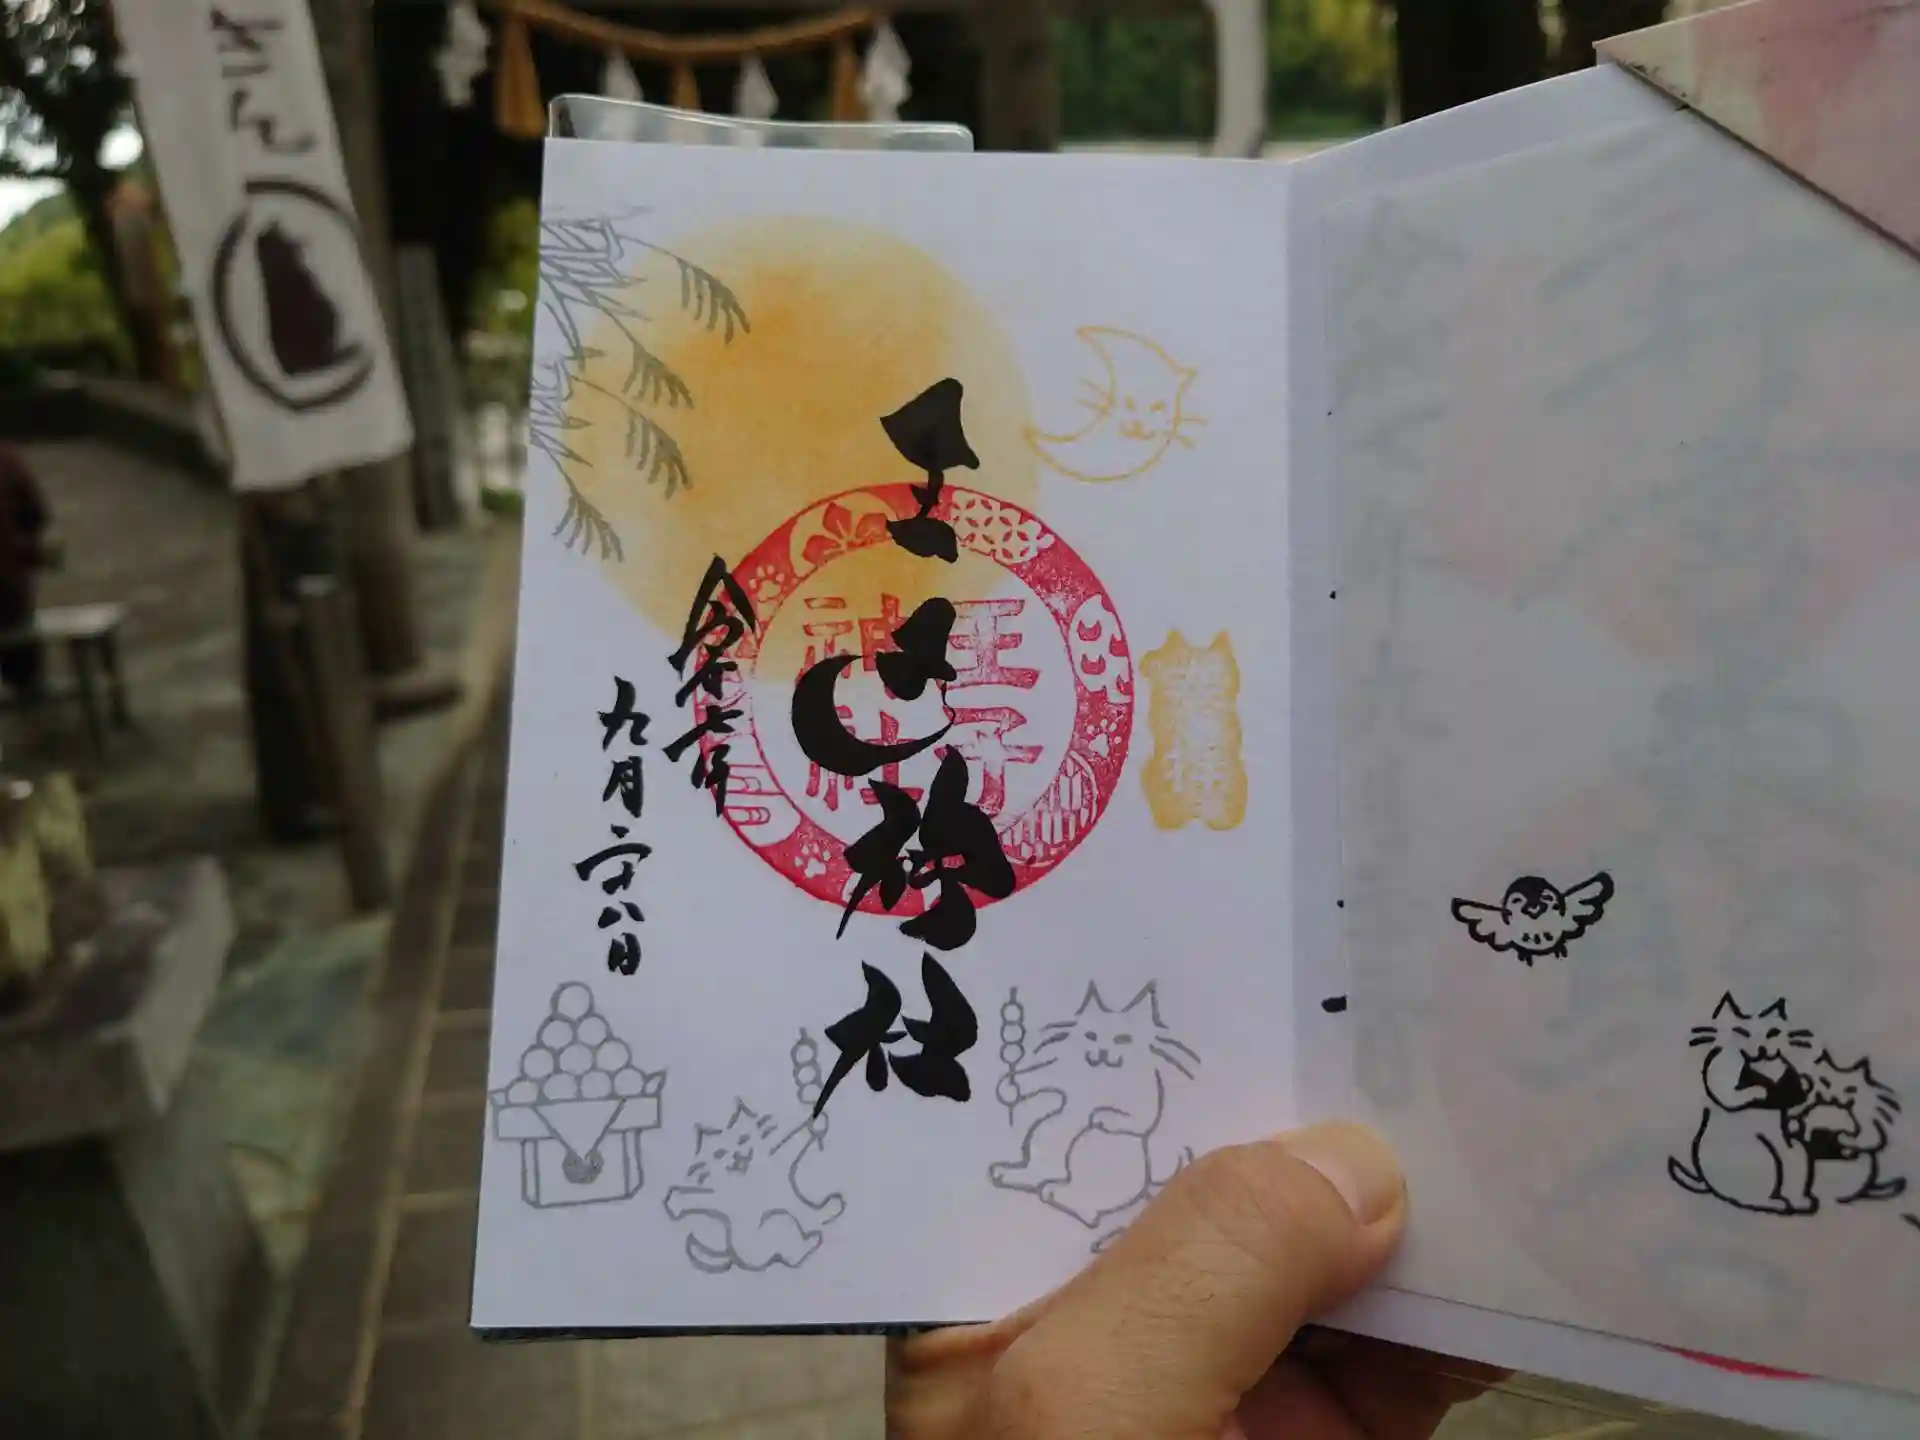 さん
王子神社
王子
神社
令和七年
九月二十八日